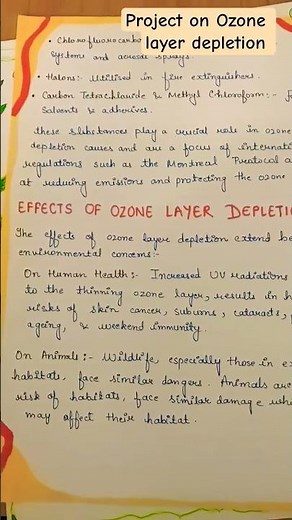 Project on Ozone
layer depletion
• Chlorofluorocarbo
systems and aerosol sprays.
• Halons:- Utilised in fire extinguishers.
• Carbon Tetrachloride & Methyl Chloroform:-
Solvents & adherives.
These substances play a crucial role in ozone
depletion causes and are a focus of internati
regulations such as the Montreal Protocol a
at reducing emissions and protecting the ozone
EFFECTS OF OZONE LAYER DEPLETI
The effects of ozone layer depletion extend be
environmental concerns:-
On Human Health:- Increased UV radiations
to the thinning ozone layer, results in h
risks of skin cancer, suburns, cataracts,
ageing, & weekend immunity.
On Animals:- Wildlife, especially those in ex
habitats, face similar dangers. Animals are
risk of habitats, face similar damage whe
may affect their habitat.